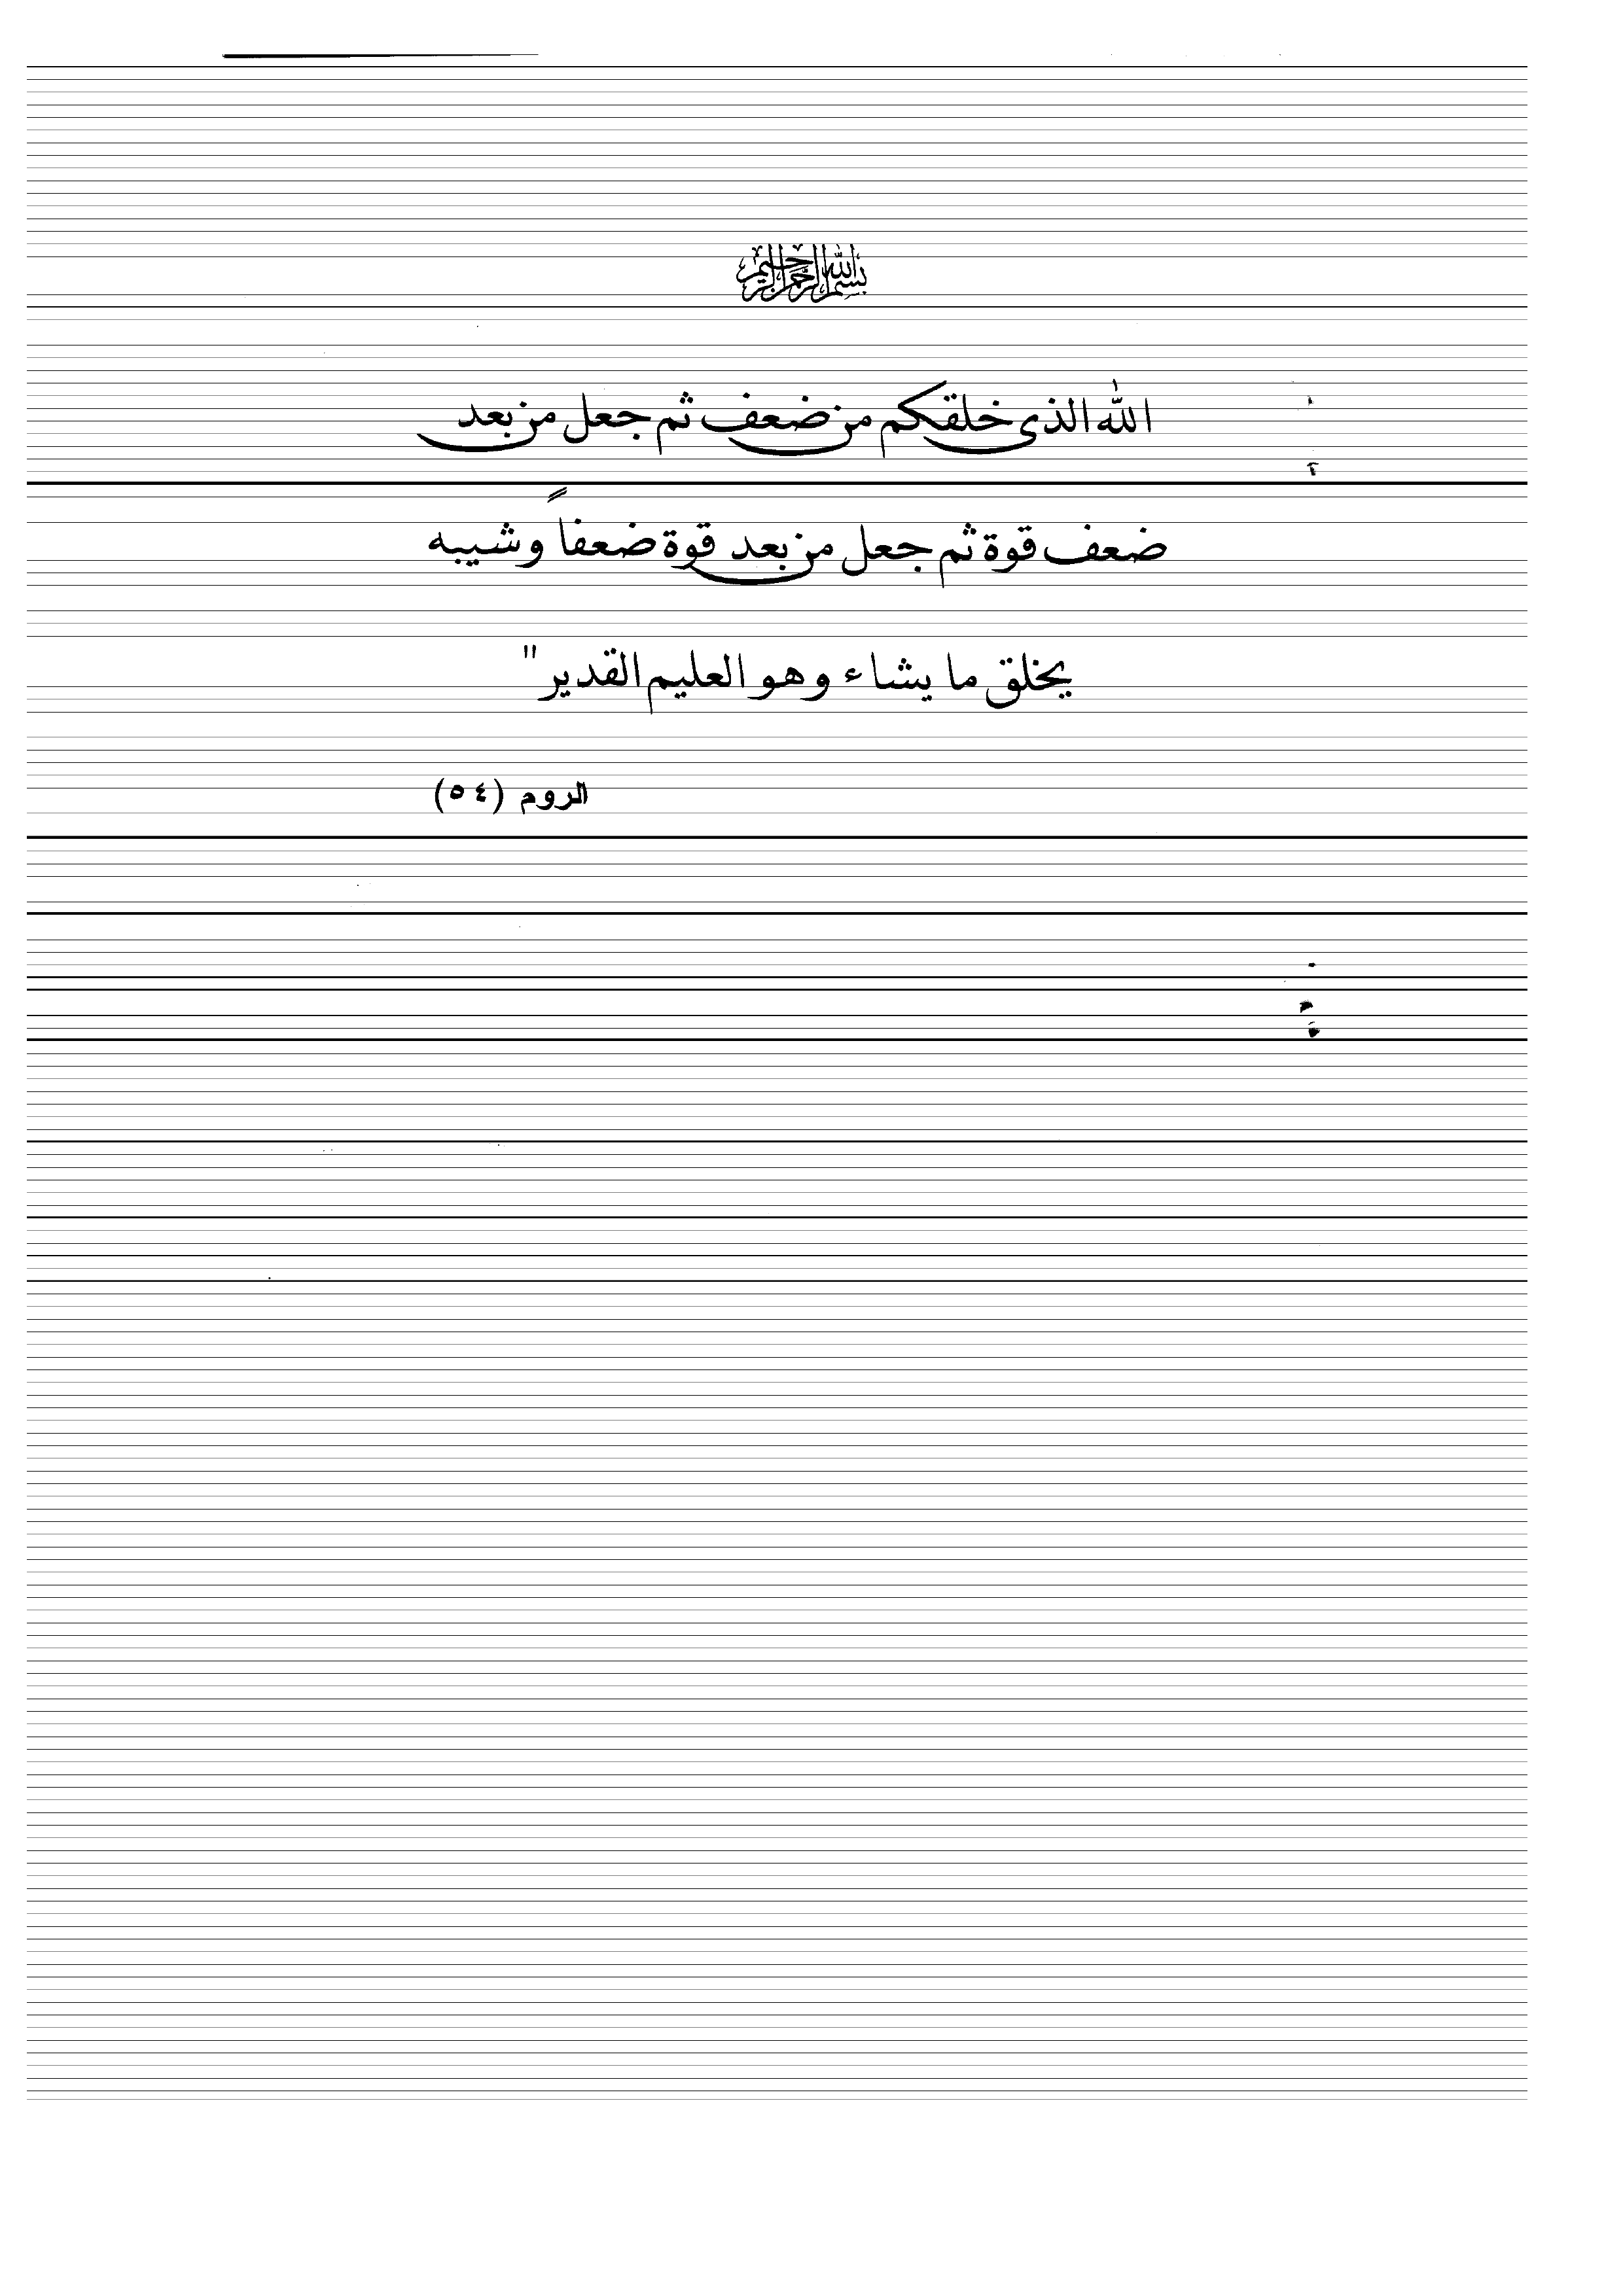 بسم الله الرحمن الرحيم
الله الذى خلقكم من ضعف ثم جعل من بعد
ضعف قوة ثم جعل من بعد قوة ضعفاً وشيبه
يخلق ما يشاء وهو العليم القدير"
الروم (٥٤)